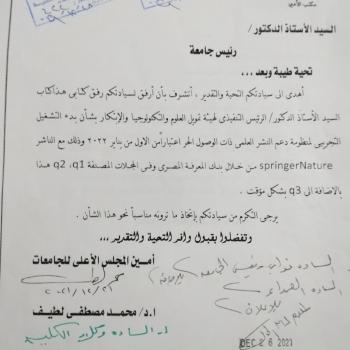 مكتب الأمين
السيد الأستاذ الدكتور/
رئيس جامعة
تحية طيبة وبعد ،،،
أهدى الى سيادتكم التحية والتقدير ، أتشرف بأن أرفق لسيادتكم رفق كتابى هذا كتاب
السيد الأستاذ الدكتور/ الرئيس التنفيذى لهيئة تمويل العلوم والتكنولوجيا والإبتكار بشأن بدء التشغيل
التجريبى لمنظومة دعم النشر العلمى ذات الوصول الحر اعتباراً من الأول من يناير ٢٠٢٢ وذلك مع الناشر
springerNature من خلال بنك المعرفة المصرى وفى المجلات المصنفة q1، q2 هذا
بالإضافة الى q3 بشكل مؤقت .
يرجى التكرم من سيادتكم بإتخاذ ما ترونه مناسباً نحو هذا الشأن .
وتفضلوا بقبول وافر التحية والتقدير،،،
أمين المجلس الأعلى للجامعات
٢٠٢١/١٢/٢١
ا.د/ محمد مصطفى لطيف
السادة نواب رئيس الجامعة
السادة
DEC 26 2021
السادة وكلاء الكلية